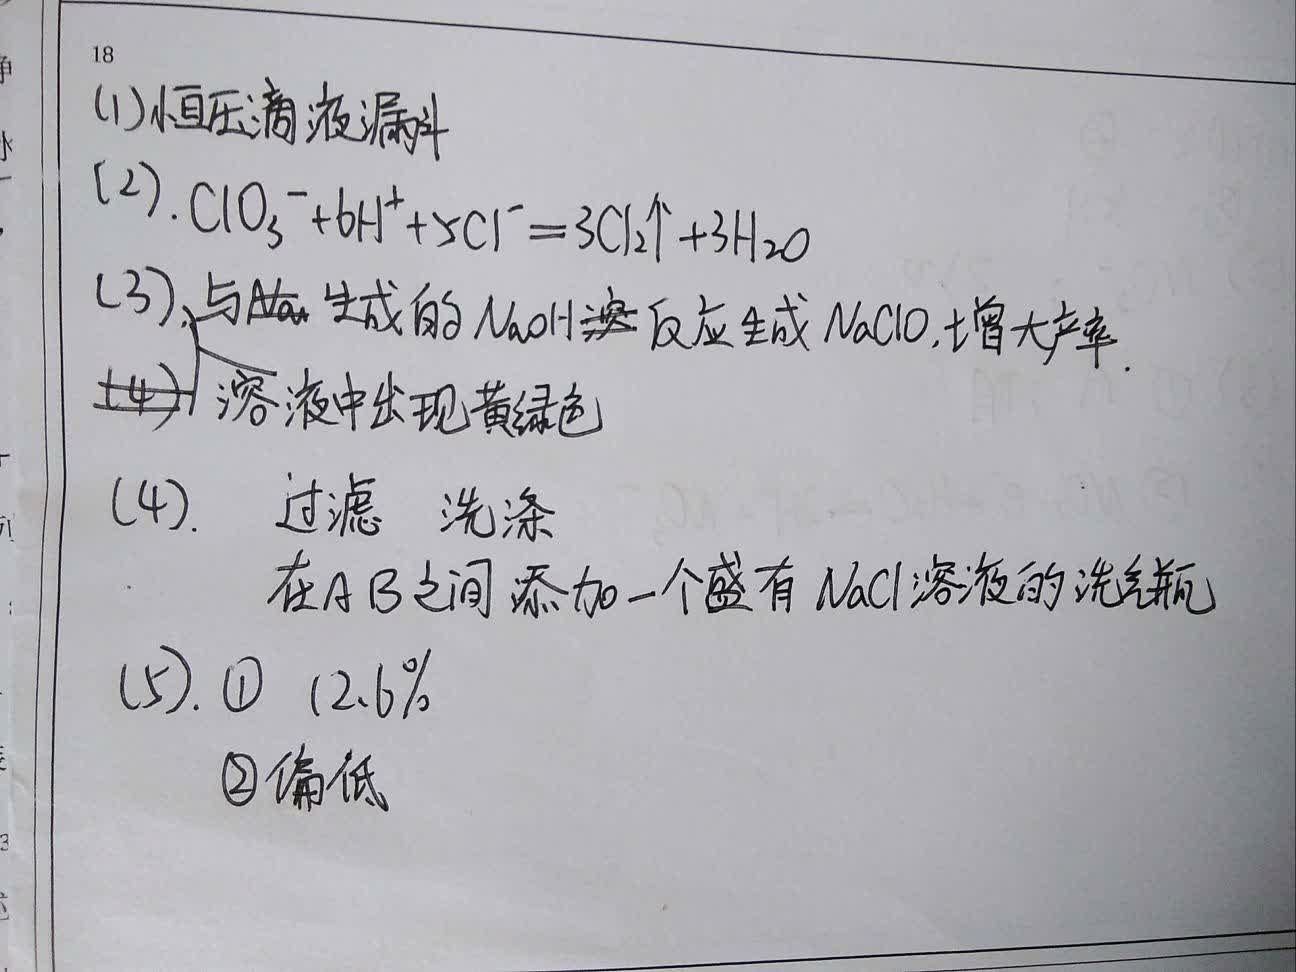 18
(1)恒压滴液漏斗
(2). ClO₃⁻+6H⁺+5Cl⁻=3Cl₂↑+3H₂O
(3). 与生成的NaOH反应生成NaClO,增大产率.
溶液中出现黄绿色
(4). 过滤 洗涤
在AB之间添加一个盛有NaCl溶液的洗气瓶
(5). ① 12.6%
②偏低